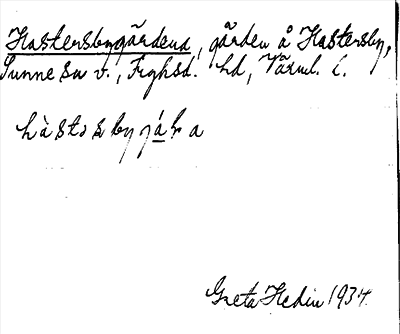 Hastersbygårdena, gården å Hastersby,
Sunne sn v., Frykhsd. hd, Värml. l.
hàstɔsbygá̱ra
Greta Hedin 1934.